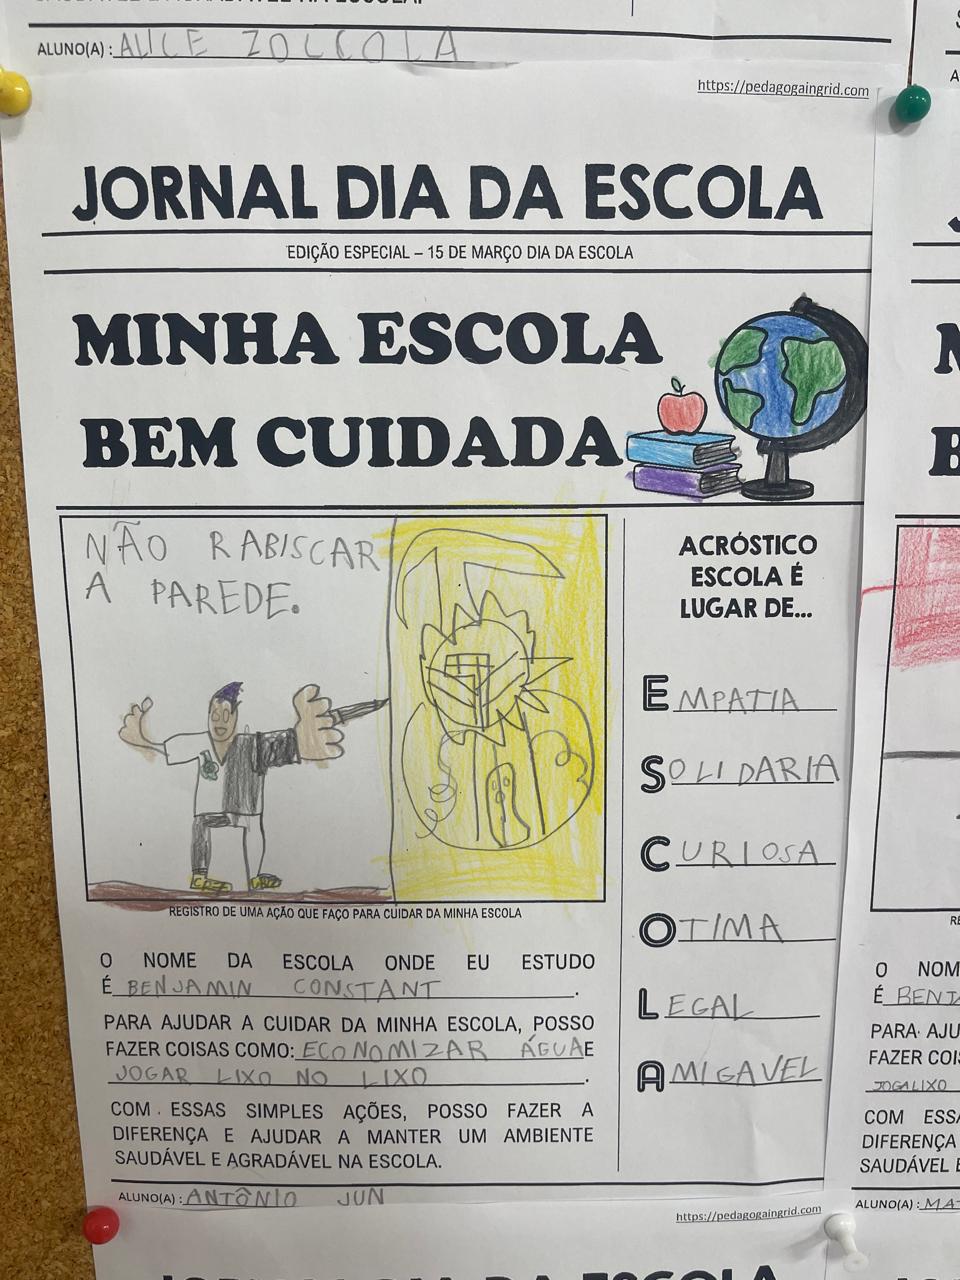 ALUNO(A) : ALICE ZOLCOLA
https://pedagogaingrid.com
JORNAL DIA DA ESCOLA
EDIÇÃO ESPECIAL – 15 DE MARÇO DIA DA ESCOLA
MINHA ESCOLA
BEM CUIDADA
NÃO RABISCAR
A PAREDE.
REGISTRO DE UMA AÇÃO QUE FAÇO PARA CUIDAR DA MINHA ESCOLA
O NOME DA ESCOLA ONDE EU ESTUDO
É BENJAMIN CONSTANT.
PARA AJUDAR A CUIDAR DA MINHA ESCOLA, POSSO
FAZER COISAS COMO: ECONOMIZAR ÁGUA E
JOGAR LIXO NO LIXO.
COM ESSAS SIMPLES AÇÕES, POSSO FAZER A
DIFERENÇA E AJUDAR A MANTER UM AMBIENTE
SAUDÁVEL E AGRADÁVEL NA ESCOLA.
ACRÓSTICO
ESCOLA É
LUGAR DE...
EMPATIA
SOLIDARIA
CURIOSA
OTIMA
LEGAL
AMIGAVEL
ALUNO(A) : ANTÔNIO JUN
https://pedagogaingrid.com
O NOM
É BENJ
PARA AJU
FAZER COI
JOGALIXO
COM ESSA
DIFERENÇA
SAUDÁVEL E
ALUNO(A) : MA